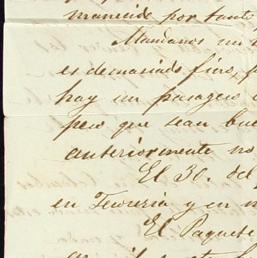 manecido por tanto
Mandanos un
es demasiado fino, p
hay un pasagero
pero que sean bue
anteriormente no
El 30. del
en Tesoreria y en
El Paquete